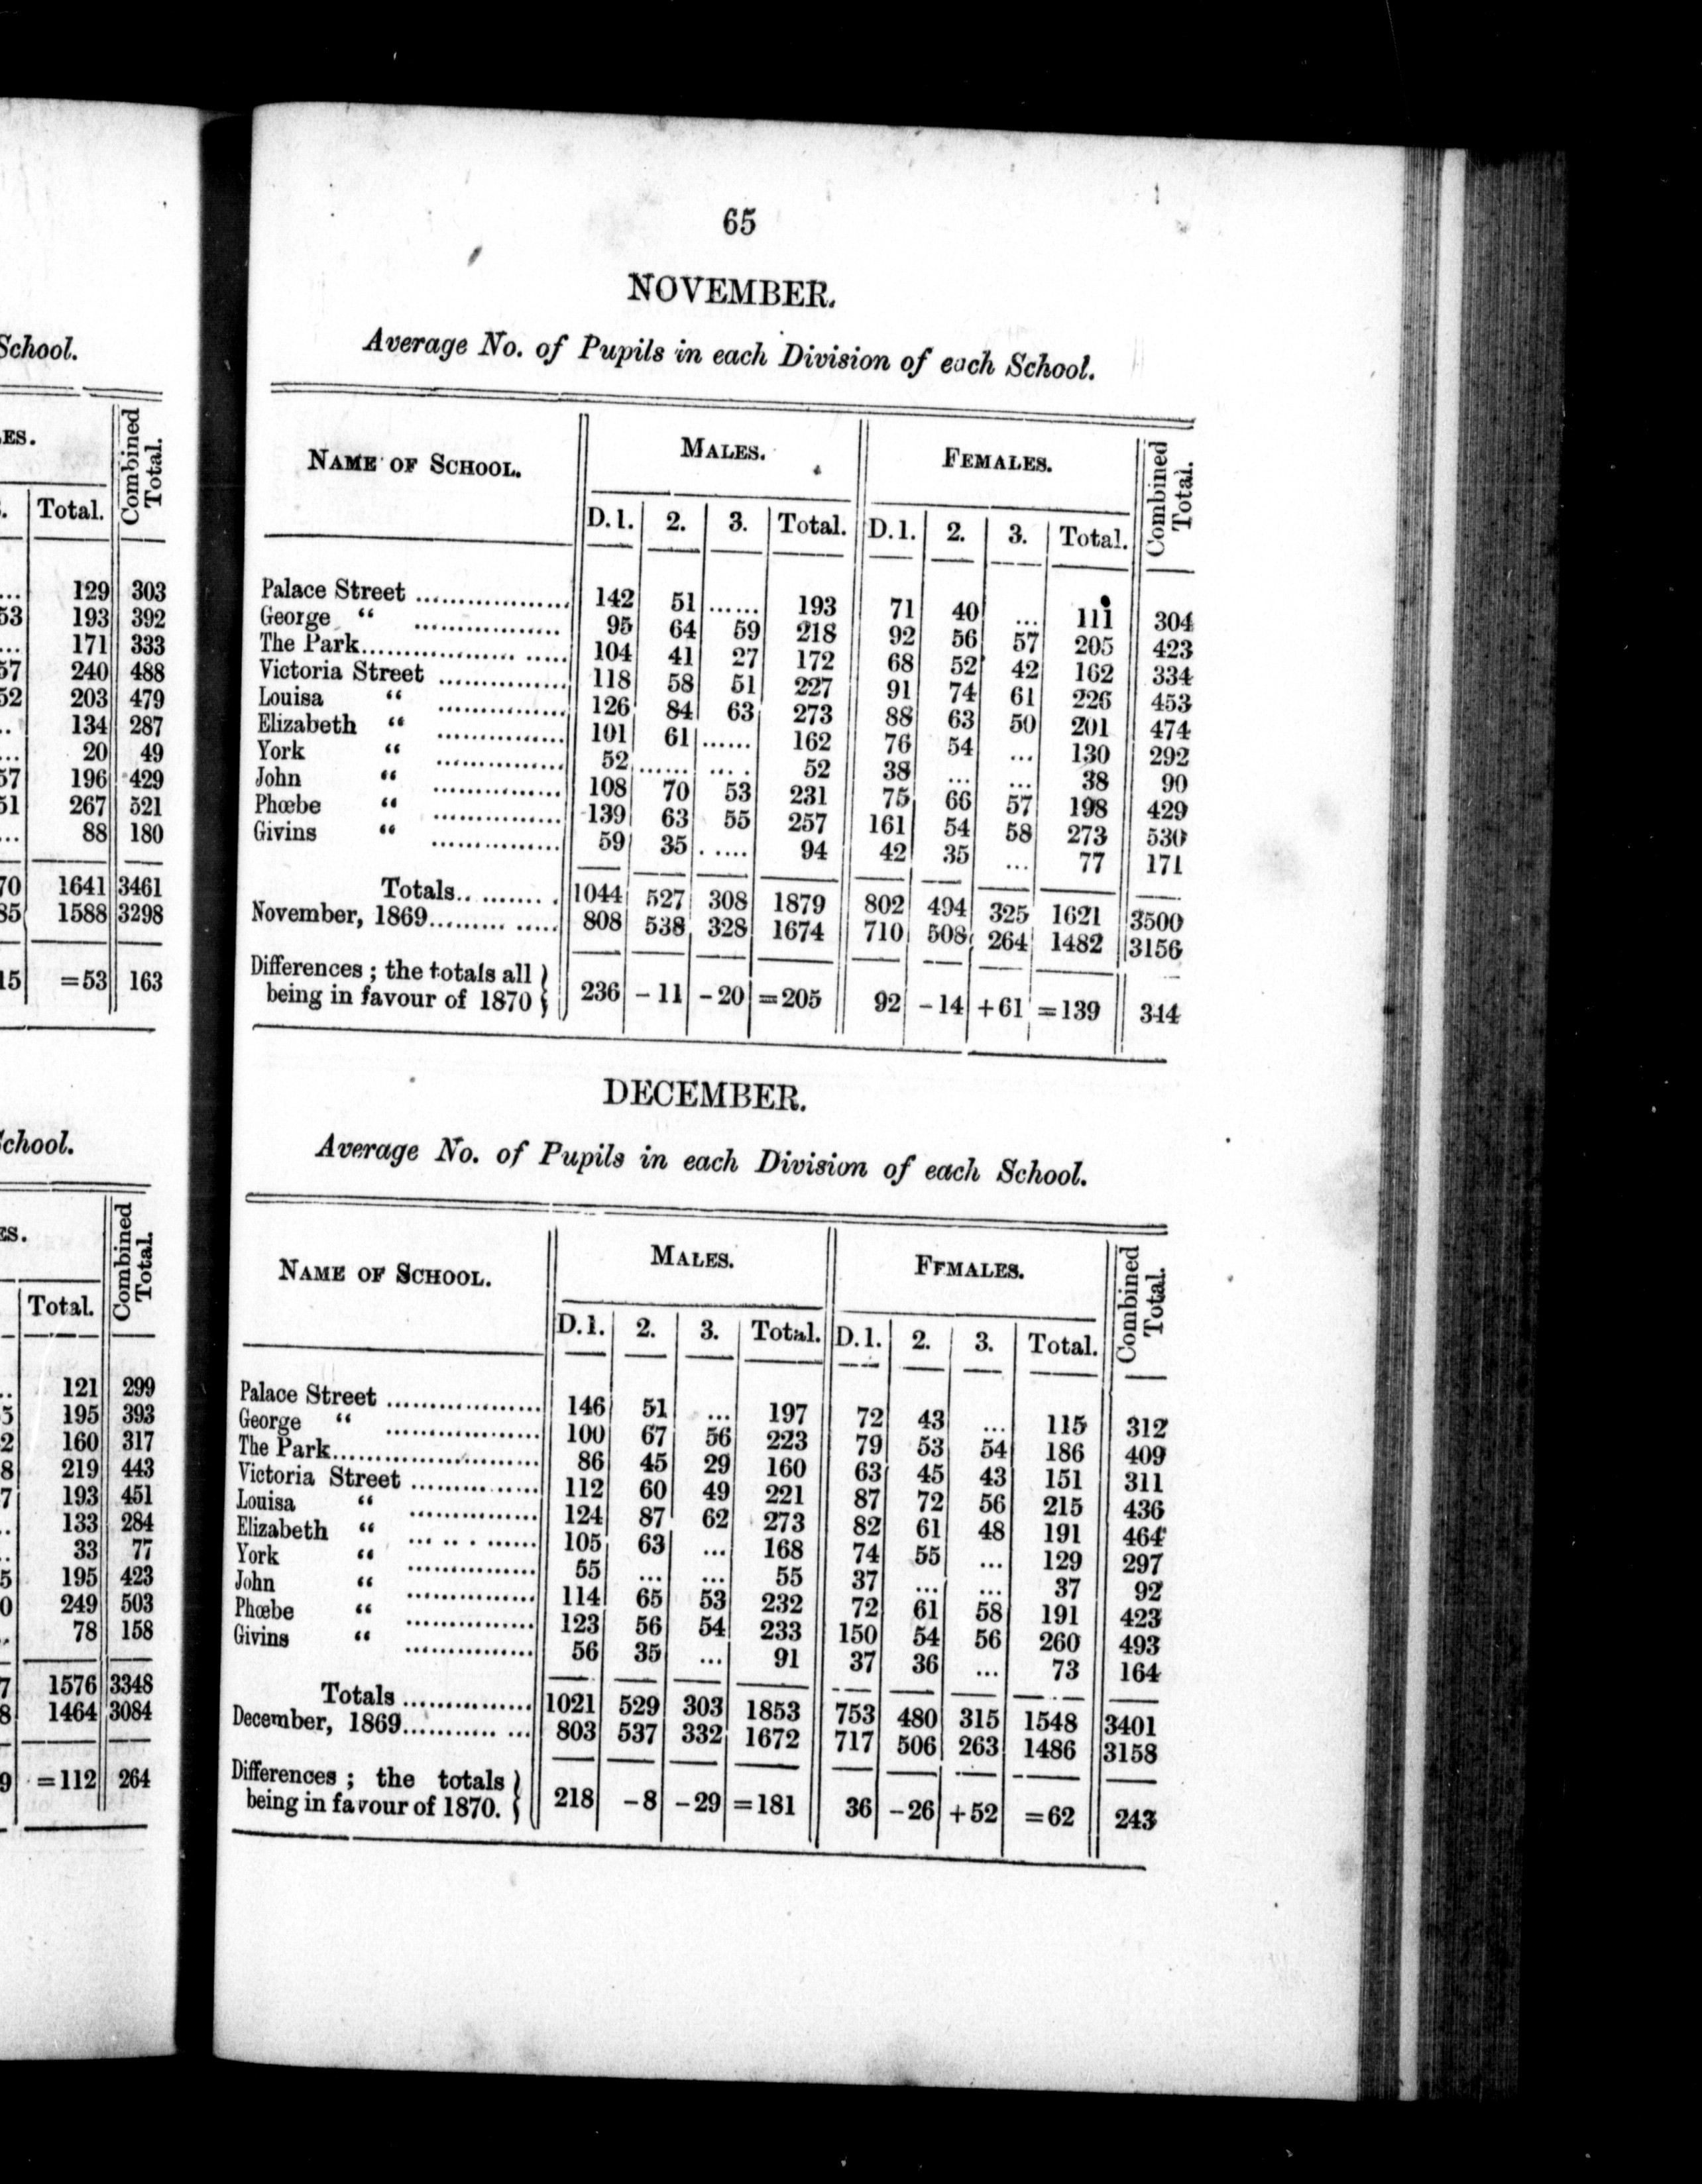 School.
ES.
Combined Total.
. Total.
... 129 303
53 193 392
... 171 333
57 240 488
52 203 479
.. 134 287
... 20 49
57 196 429
51 267 521
... 88 180
70 1641 3461
85 1588 3298
15 =53 163
School.
ES.
Combined Total.
Total.
.. 121 299
5 195 393
2 160 317
8 219 443
7 193 451
.. 133 284
.. 33 77
5 195 423
0 249 503
.. 78 158
7 1576 3348
8 1464 3084
9 =112 264
65
NOVEMBER.
Average No. of Pupils in each Division of each School.
NAME OF SCHOOL. MALES. FEMALES. Combined Total.
D. 1. 2. 3. Total. D. 1. 2. 3. Total.
Palace Street .................. 142 51 ...... 193 71 40 ... 111 304
George “ ................. 95 64 59 218 92 56 57 205 423
The Park.................. ..... 104 41 27 172 68 52 42 162 334
Victoria Street ............... 118 58 51 227 91 74 61 226 453
Louisa “ ............... 126 84 63 273 88 63 50 201 474
Elizabeth “ ............... 101 61 ...... 162 76 54 ... 130 292
York “ ............... 52 ...... ... . 52 38 ... ... 38 90
John “ ............... 108 70 53 231 75 66 57 198 429
Phœbe “ ............... 139 63 55 257 161 54 58 273 530
Givins “ ............... 59 35 . ..... 94 42 35 ... 77 171
Totals.. ........ . 1044 527 308 1879 802 494 325 1621 3500
November, 1869......... ..... 808 538 328 1674 710 508 264 1482 3156
Differences ; the totals all
being in favour of 1870 } 236 -11 -20 =205 92 -14 +61 =139 344
DECEMBER.
Average No. of Pupils in each Division of each School.
NAME OF SCHOOL. MALES. FFMALES. Combined Total.
D. 1. 2. 3. Total. D. 1. 2. 3. Total.
Palace Street .................. 146 51 ... 197 72 43 ... 115 312
George “ .................. 100 67 56 223 79 53 54 186 409
The Park........................ 86 45 29 160 63 45 43 151 311
Victoria Street ......... ...... 112 60 49 221 87 72 56 215 436
Louisa “ ............... 124 87 62 273 82 61 48 191 464
Elizabeth “ ... .. . ...... 105 63 ... 168 74 55 ... 129 297
York “ ............... 55 ... ... 55 37 ... ... 37 92
John “ ............... 114 65 53 232 72 61 58 191 423
Phœbe “ ............... 123 56 54 233 150 54 56 260 493
Givins “ ............... 56 35 ... 91 37 36 ... 73 164
Totals ............... 1021 529 303 1853 753 480 315 1548 3401
December, 1869............ ... 803 537 332 1672 717 506 263 1486 3158
Differences ; the totals
being in favour of 1870. } 218 -8 -29 =181 36 -26 +52 =62 243